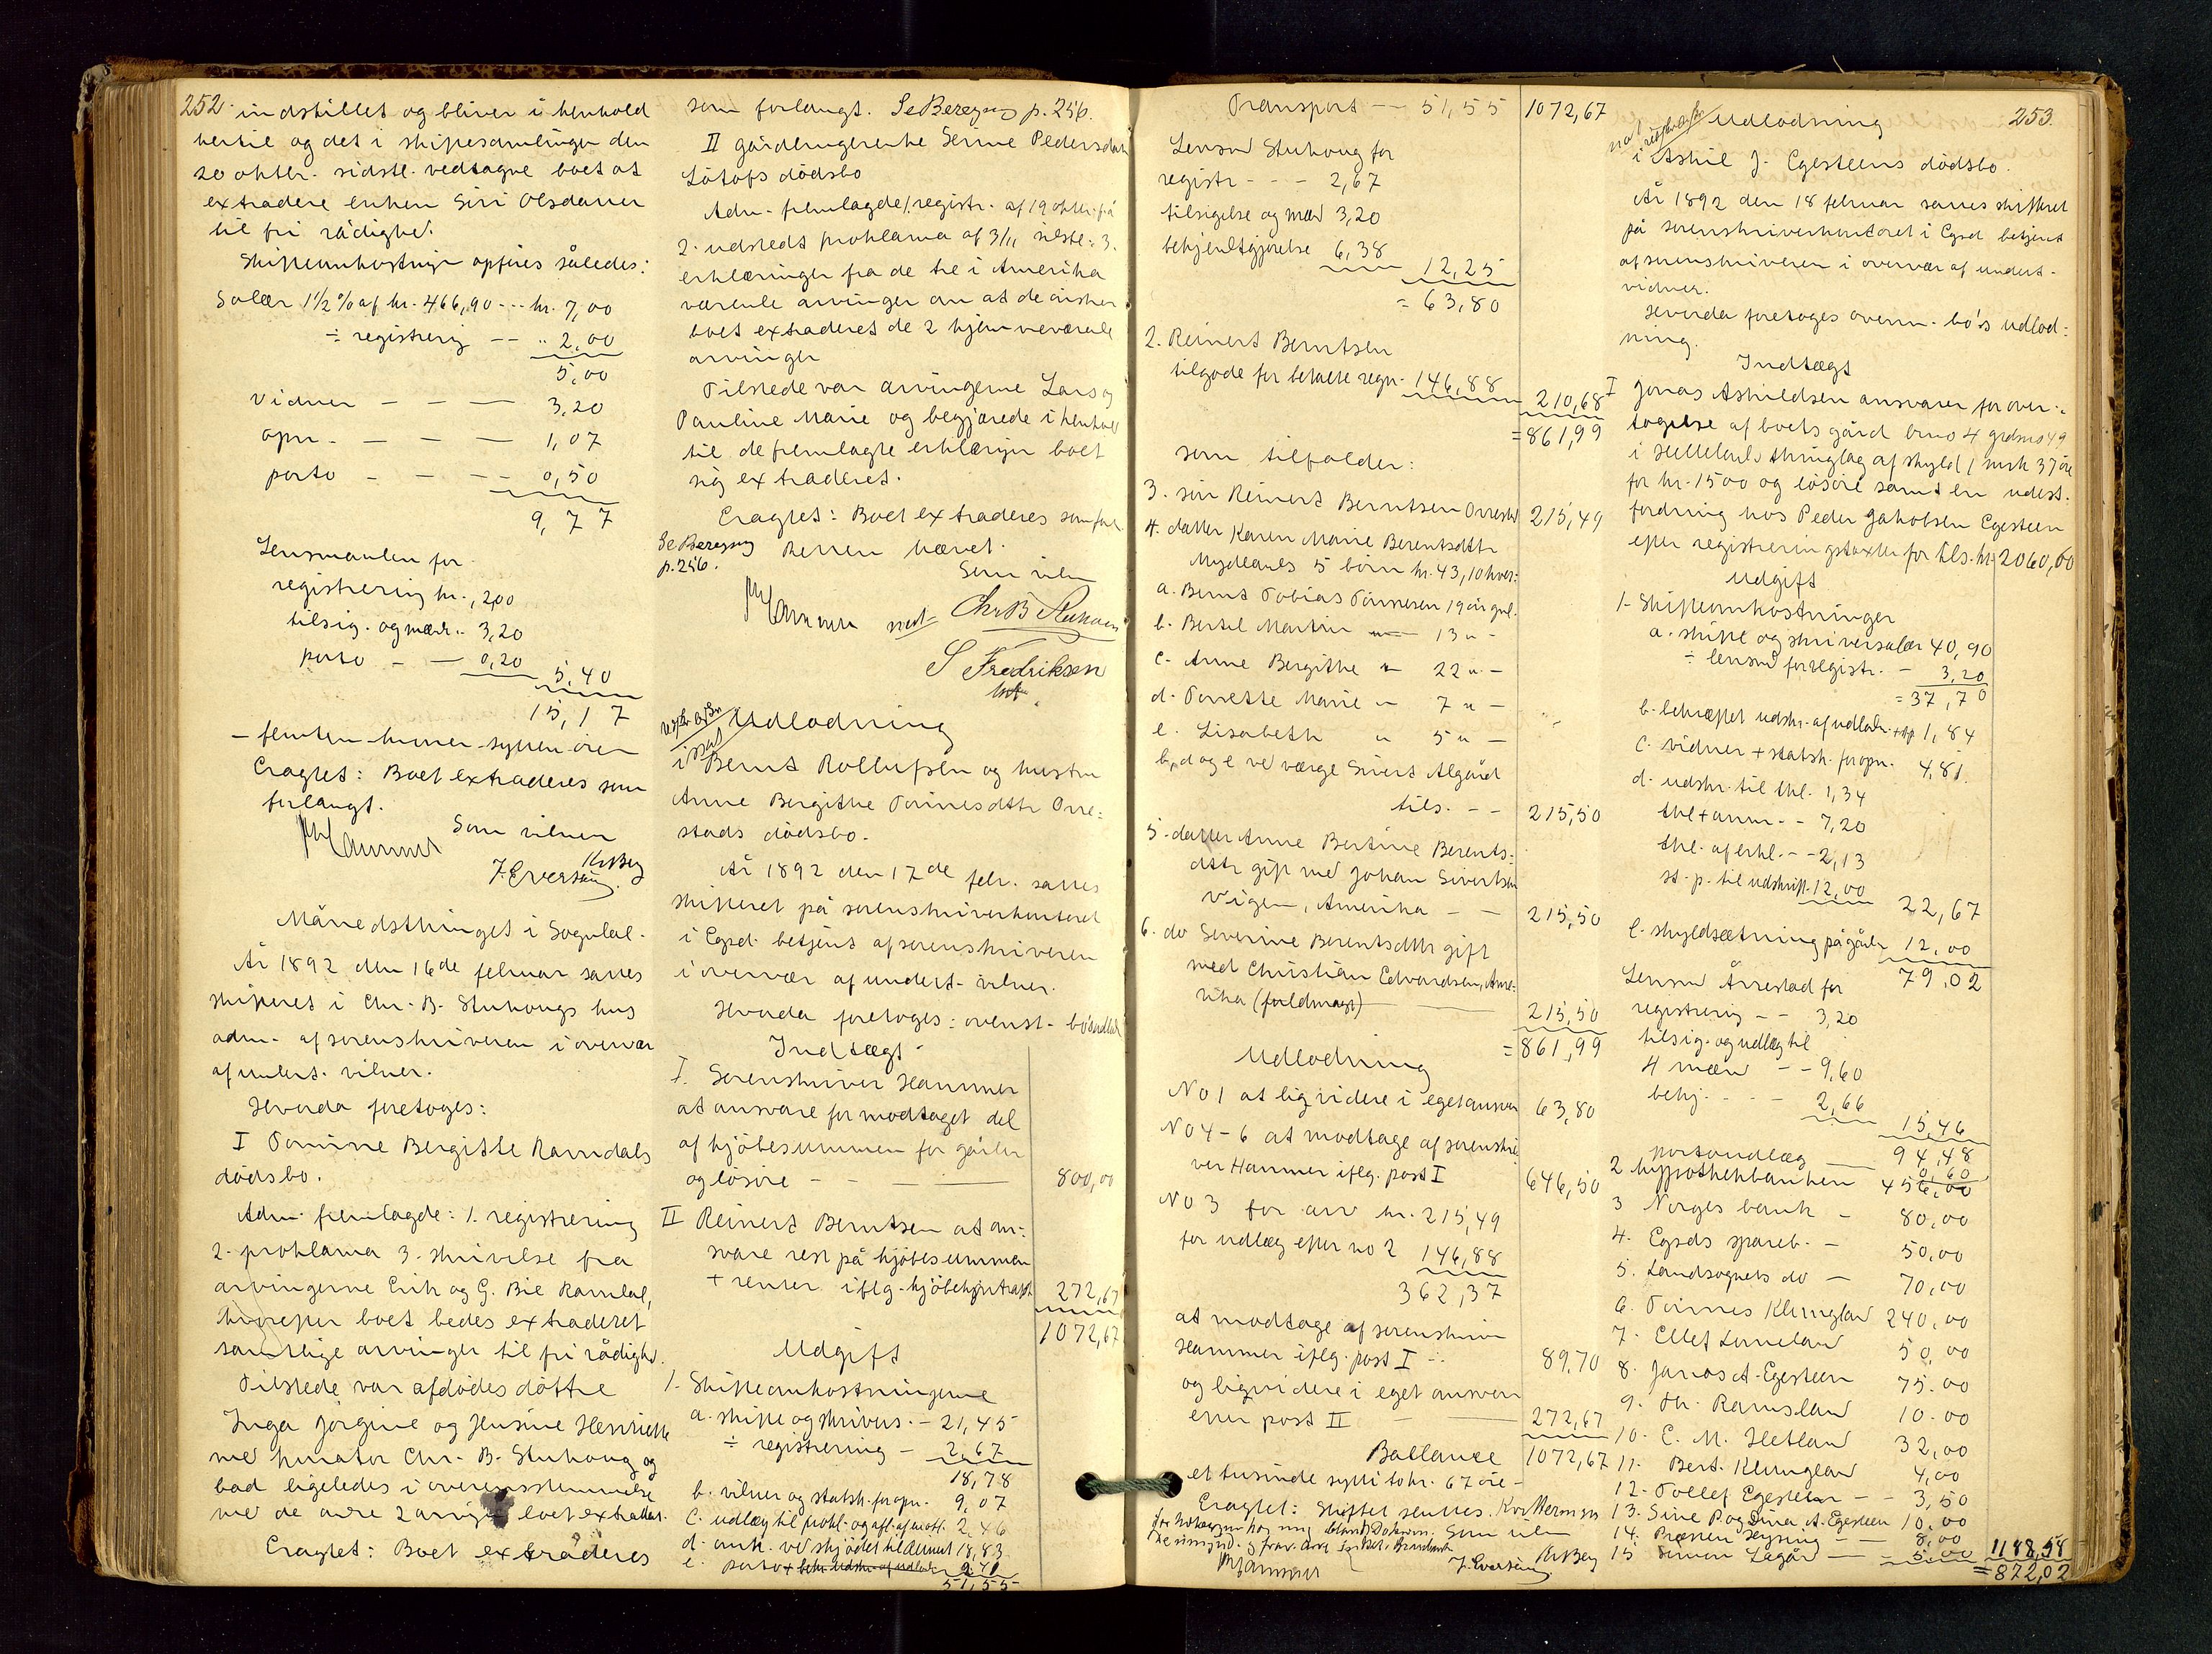 252.
indstillet og bliver i henhold
hertil og det i skiftesamlingen den
20 oktbr. sidstl. vedtagne boet at
extradere enken Siri Olsdatter
til fri rådighed.
Skifteomkostninger opføres således:
Salær 1½ % af kr. 466,90 --- kr. 7,00
÷ registrering -- " 2,00
5,00
vidner - - - 3,20
opn. - - - - 1,07
porto - - - - 0,50
9,77
Lensmanden for
registrering kr. 2,00
tilsig. og mænd " 3,20
porto - - 0,20 5,40
15,17
- femten kroner sytten øre
Eragtet: Boet extraderes som
forlangt.
Hammer Som vidner
Kr Berg
J. Evertsen
Månedsthinget i Sogndal.
År 1892 den 16de februar sattes
skifteret i Chr. B. Stuhougs hus
adm. af sorenskriveren i overvær
af undert. vidner.
Hvorda foretoges:
I Tomine Bergitte Ramdals
dødsbo.
Adm. fremlagde: 1. registrering
2. proklama 3. skrivelse fra
arvingerne Erik og G. Bie Ramdal,
hvorefter boet bedes extraderet
samtlige arvinger til fri rådighd.
Tilstede var afdødes døttre
Inga Jørgine og Jensine Henriette
med kurator Chr. B. Stuhoug og
bad ligeledes i overensstemmelse
med de andre 2 arvinger boet extradert.
Eragtet: Boet extraderes
som forlangt. Se Beregning p. 256.
II gårdbrugerenke Serine Pedersdatter
Låtofs dødsbo
Adm. fremlagde 1. registr. af 19 oktbr. på
2. udstedt proklama af 3/11 sidstl. 3.
erklæringer fra de tre i Amerika
værende arvinger om at de ønsker
boet extraderet de 2 hjemmeværende
arvinger
Tilstede var arvingerne Lars og
Pauline Marie og begjærede i henhold
til de fremlagte erklæringer boet
sig extraderet.
Eragtet: Boet extraderes som forl.
Se Beregning p. 256. Retten hævet.
Som vidn
Hammer Chr B Stuhoug
S Fredriksen
Udlodning
i Bernt Rollufsen og hustru
Anne Bergithe Tønnesdttr Orre-
stads dødsbo.
År 1892 den 17de febr. sattes
skifteret på sorenskriverkontoret
i Egsd. betjent af sorenskriveren
i overvær af undert. vidner.
Hvorda foretoges: ovenst. bo's udlod
Indtægt
I. Sorenskriver Hammer
at ansvare for modtaget del
af kjøbesummen for gården
og løsøre - - - 800,00
II Reinert Berntsen at an-
svare rest på kjøbesummen
+ renter iflg. kjøbekontrakt 272,67
1072,67
Udgift
1. Skifteomkostningerne
a. skifte og skrivers. - 21,45
÷ registrering - 2,67
18,78
b. vidner og statsk. for opn. 9,07
c. udlæg til prokl. og afl. af 2,46
d. ved skjødet til 18,83
e. porto + bekr. udskr. af udlodn. 2,41
51,55
Transport -- 51,55 1072,67
Lensmd Stuhoug for
registr - - - 2,67
tilsigelse og mænd 3,20
bekjendtgjørelse 6,38
12,25
= 63,80
2. Reinert Berntsen
tilgode for betalte regn. 146,88
210,68
= 861,99
som tilfalder:
3. søn Reinert Berntsen Orrestad 215,49
4. datter Karen Marie Berentsdttr
Mydlands 5 børn kr. 43,10 hver:
a. Bernt Tobias Tønnesen 19 år gml.
b. Bertel Martin " 13 " -
c. Anne Bergithe " 22 " -
d. Torrette Marie " 7 " -
e. Lisabeth " 5 " -
b, d og e ved værge Sivert Algård
tils. - - 215,50
5. datter Anne Bertine Berents-
dttr gift med Johan Sivertsen
Vigen, Amerika - - 215,50
6. do Severine Berentsdttr gift
med Christian Edvardsen, Ame-
rika (fuldmagt) 215,50
= 861,99
Udlodning
No 1 at ligvidere i eget ansvar 63,80
No 4-6 at modtage af sorenskri-
ver Hammer iflg. post I 646,50
No 3 for arv kr. 215,49
for udlæg efter no 2 146,88
362,37
at modtage af sorenskriver
Hammer iflg. post I - 89,70
og ligvidere i eget ansvar
efter post II - 272,67
Ballance 1072,67
et tusinde sytti to kr. 67 øre -
Eragtet: Skiftet sluttes.
Som vidn
Hammer J. Evertsen Kr Berg
253.
Udlodning
i Askil J. Egesteens dødsbo.
År 1892 den 18 februar sattes skifteret
på sorenskriverkontoret i Egsd betjent
af sorenskriveren i overvær af undert.
vidner.
Hvorda foretoges ovenn. bo's udlod-
ning.
Indtægt
I Jonas Askildsen ansvarer for over-
tagelse af boets gård brno 4 grdsno 49
i Hellelands thinglag af skyld 1 mrk 37 øre
for kr. 1500 og løsøre samt en udest.
fordring hos Peder Jakobsen Egesteen
efter registreringstaxten for tils. kr. 2060,60
Udgift
1. Skifteomkostninger
a. skifte og skriversalær 40,90
÷ lensmd for registr. - 3,20
= 37,70
b. bekræftet udskr. af udlodn. + stp 1,84
c. vidner + statsk. for opn. 4,81
d. udskr. til thl. 1,34
thl + ann. - - 7,20
thl. af erkl. - - 2,13
st. p. til udskrift 12,00
22,67
e. skyldsætning på gården 12,00
79,02
Lensmd Årrestad for
registrering - - 3,20
tilsig. og udlæg til
4 mænd - - 9,60
bekj. - - - 2,66
15,46
94,48
portoudlæg 0,60
2 hypothekbanken 456,00
3 Norges bank - 80,00
4. Egsds spareb. - 50,00
5. Landsognets do - 70,00
6. Tønnes Klungland 240,00
7. Ellef Lomeland 50,00
8. Jonas A. Egesteen 75,00
9. Th. Ramsland 10,00
10. E. M. Hetland 32,00
11. Bert. Klungland 4,00
12. Tollef Egesteen - - 3,50
13. Sine P. og Sina A. Egesteen 10,00
14. 8,00
15 Simon Lagård - 5,00 1188,58
= 872,02